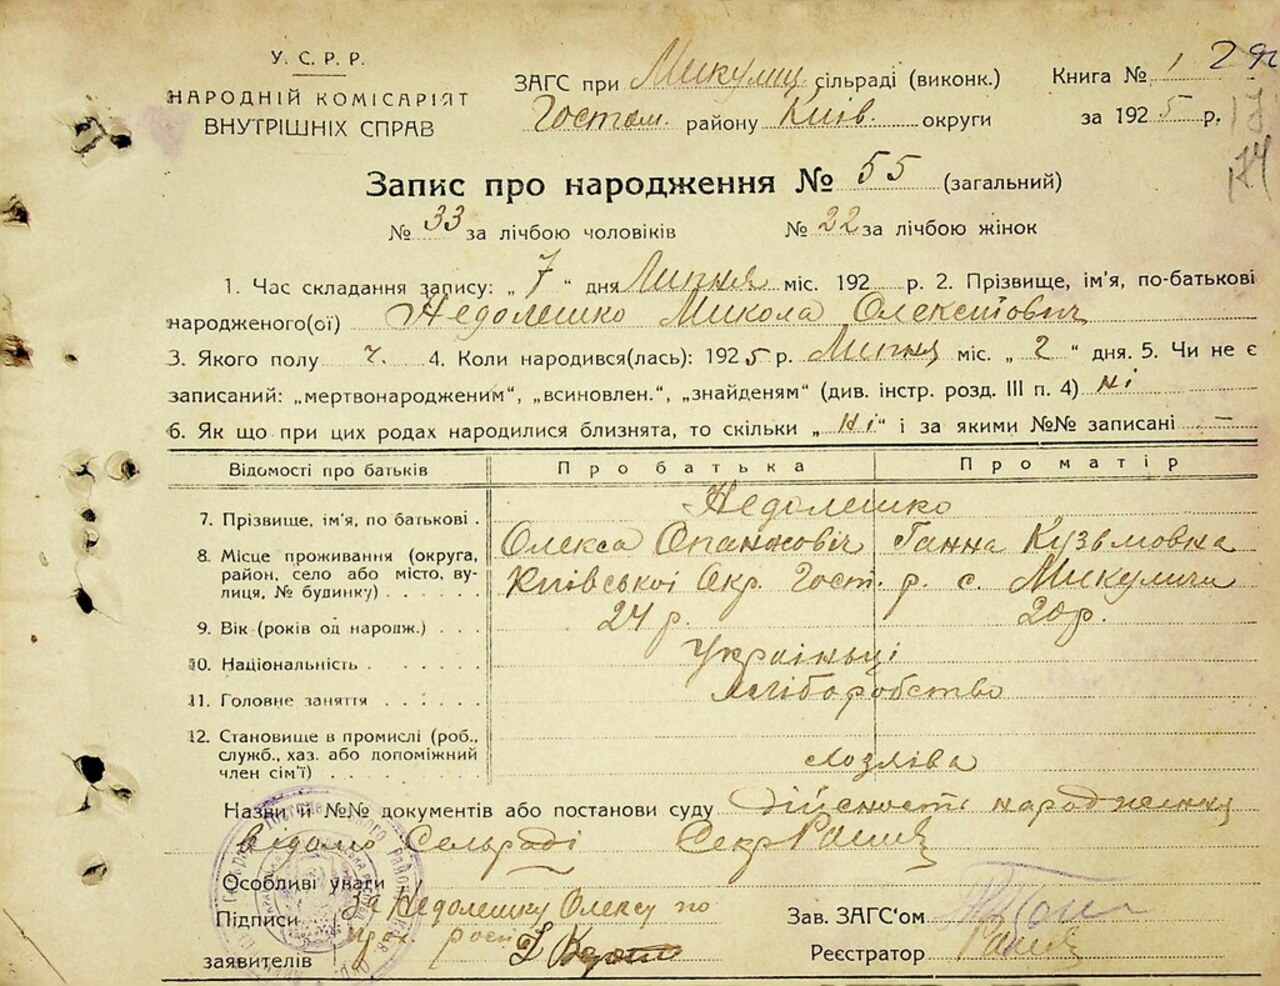 У. С. Р. Р.
НАРОДНІЙ КОМІСАРІЯТ
ВНУТРІШНІХ СПРАВ
ЗАГС при Микулиц сільраді (виконк.)
Гостом. району Київ. округи
Книга № 1
за 1925 р.
Запис про народження № 55 (загальний)
№ 33 за лічбою чоловіків № 22 за лічбою жінок
1. Час складання запису: „ 7 “ дня Липня міс. 192 р. 2. Прізвище, ім'я, по-батькові
народженого(ої) Недолешко Микола Олексійович
3. Якого полу ч. 4. Коли народився(лась): 1925 р. Липня міс. „ 2 “ дня. 5. Чи не є
записаний: „мертвонародженим“, „всиновлен.“, „знайденям“ (див. інстр. розд. III п. 4) ні
6. Як що при цих родах народилися близнята, то скільки „ ні “ і за якими №№ записані —
Відомості про батьків Про батька Про матір
7. Прізвище, ім'я, по батькові . Недолешко
Олекса Опанасович Ганна Кузьмовна
8. Місце проживання (округа, район, село або місто, вулиця, № будинку) . . . . . . Київської Окр. Гост. р. с. Микуличи
9. Вік (років од народж.) . . . 24 р. 20 р.
10. Національність . . . . . . Українці
11. Головне заняття . . . . . . Хліборобство
12. Становище в промислі (роб., служб., хаз. або допоміжний член сім'ї) . . . . . . .
Назви й №№ документів або постанови суду дійсність народження
відомо Сельраді Секр
Особливі уваги
Підписи За Недолешку Олексу по
заявителів
Зав. ЗАГС'ом
Реєстратор